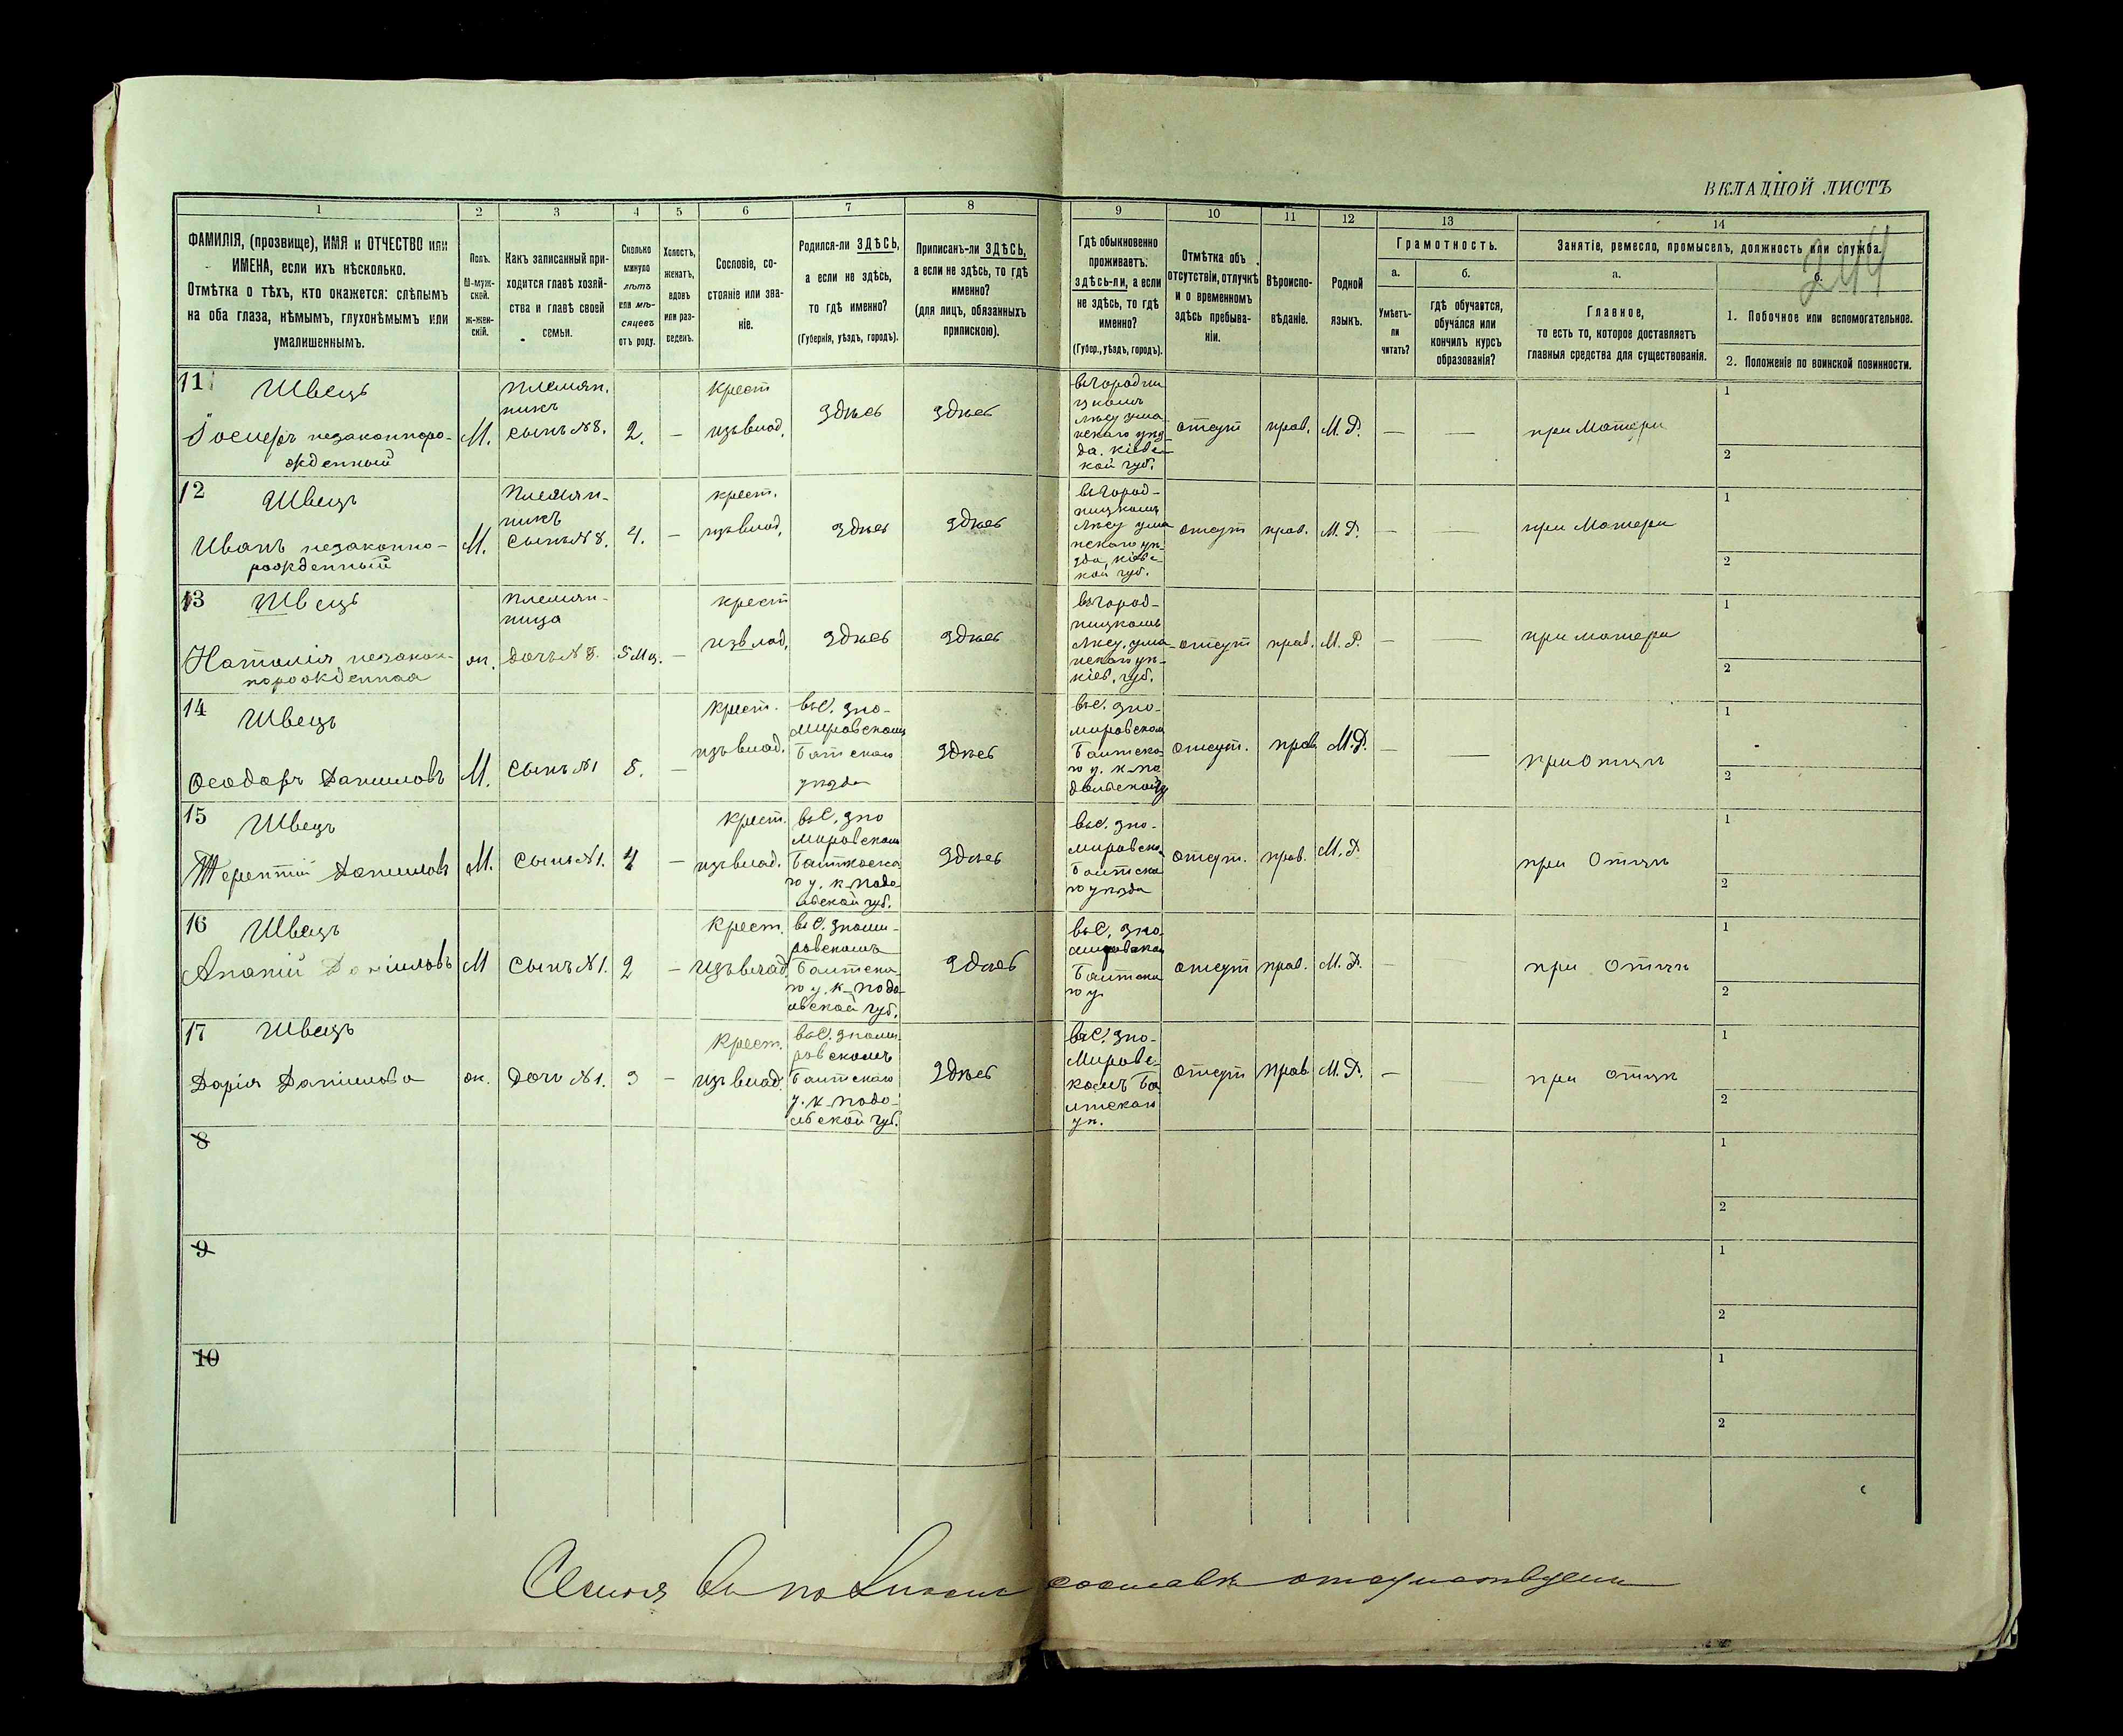 ВКЛАДНОЙ ЛИСТЪ
244
1 2 3 4 5 6 7 8 9 10 11 12 13 14
ФАМИЛІЯ, (прозвище), ИМЯ и ОТЧЕСТВО или
ИМЕНА, если ихъ нѣсколько.
Отмѣтка о тѣхъ, кто окажется: слѣпымъ
на оба глаза, нѣмымъ, глухонѣмымъ или
умалишеннымъ.
Полъ.
М-муж-
ской.
ж-жен-
скій.
Какъ записанный при-
ходится главѣ хозяй-
ства и главѣ своей
семьи.
Сколько
минуло
лѣтъ
или мѣ-
сяцевъ
отъ роду.
Холостъ,
женатъ,
вдовъ
или раз-
веденъ.
Сословіе, со-
стояніе или зва-
ніе.
Родился-ли ЗДѢСЬ,
а если не здѣсь,
то гдѣ именно?
(Губернія, уѣздъ, городъ).
Приписанъ-ли ЗДѢСЬ,
а если не здѣсь, то гдѣ
именно?
(для лицъ, обязанныхъ
припискою).
Гдѣ обыкновенно
проживаетъ:
здѣсь-ли, а если
не здѣсь, то гдѣ
именно?
(Губер., уѣздъ, городъ).
Отмѣтка объ
отсутствіи, отлучкѣ
и о временномъ
здѣсь пребыва-
ніи.
Вѣроиспо-
вѣданіе.
Родной
языкъ.
Грамотность.
а.
Умѣетъ-
ли
читать?
б.
гдѣ обучается,
обучался или
кончилъ курсъ
образованія?
Занятіе, ремесло, промыселъ, должность или служба.
а.
Главное,
то есть то, которое доставляетъ
главныя средства для существованія.
б.
1. Побочное или вспомогательное.
2. Положеніе по воинской повинности.
11 Швець
Іосифъ незаконноро-
жденный
М.
племян.
никъ
сынъ № 8.
2.
—
крест
изъ влад.
здѣсь
здѣсь
въ Городни
цкомъ
лѣсу ума
нскаго уѣз
да. кіевс
кой губ.
отсут
прав.
М. Р.
—
—
при Матери
1
2
12 Швець
Иванъ незаконно-
рожденный
М.
Племян-
никъ
сынъ № 8.
4.
—
крест.
изъ влад.
здѣсь
здѣсь
въ Город-
ницкомъ
лѣсу ума
нскаго уѣ-
зда, кіевс
кой губ.
отсут
прав.
М. Р.
—
—
при Матери
1
2
13 Швець
Наталія незакон-
норожденная
ж.
племян-
ница
дочь № 8.
5 Мц.
—
крест
изъ влад.
здѣсь
здѣсь
въ Город-
ницкомъ
лѣсу, ума
нскаго уѣ-
кіев. губ.
отсут
прав.
М. Р.
—
—
при матери
1
2
14 Швець
Ѳеодоръ Даниловъ
М.
Сынъ № 1
8.
—
крест.
изъ влад.
въ С.
Балтскаго
уѣзда
здѣсь
въ С.
отсут.
прав
М. Р.
—
—
при Отцѣ
1
2
15 Швець
Терентій Даниловъ
М.
Сынъ № 1.
4
—
крест.
изъ влад.
въ С.
здѣсь
въ С.
отсут.
прав.
М. Р
при Отцѣ
1
2
16 Швець
Ананій Даниловъ
М
Сынъ № 1.
2
—
крест.
изъ влад.
въ С.
здѣсь
въ С.
отсут
прав.
М. Р.
—
при Отцѣ
1
2
17 Швець
Дарія Данилова
ж.
Дочь № 1.
9
—
крест.
изъ влад.
въ С.
Балтскаго
здѣсь
въ С.
отсут
прав
М. Р.
—
при отцѣ
1
2
8
1
2
9
1
2
10
1
2
Семья въ полномъ составѣ отсутствуетъ